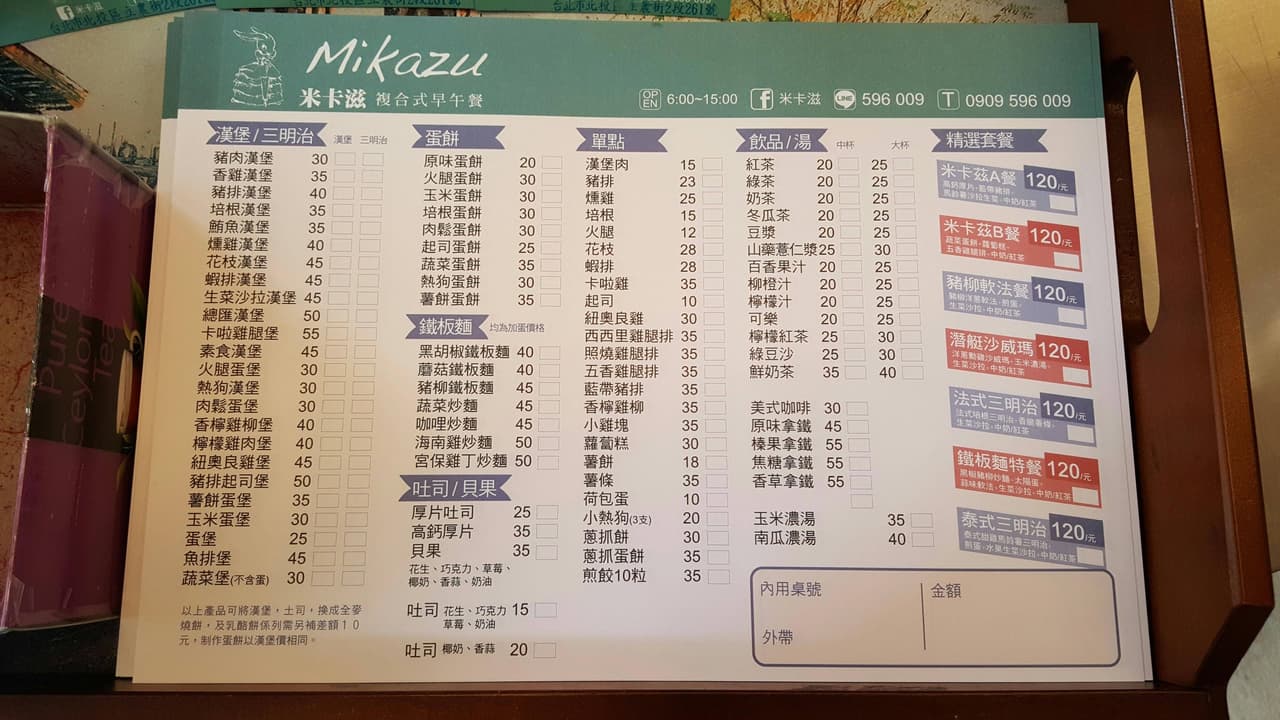 米卡滋
台北市北投區立農街2段261號
Mikazu
米卡滋 複合式早午餐
OPEN 6:00~15:00 米卡滋 LINE 596 009 T 0909 596 009
漢堡/三明治 漢堡 三明治
豬肉漢堡 30
香雞漢堡 35
豬排漢堡 40
培根漢堡 35
鮪魚漢堡 35
燻雞漢堡 40
花枝漢堡 45
蝦排漢堡 45
生菜沙拉漢堡 45
總匯漢堡 50
卡啦雞腿堡 55
素食漢堡 45
火腿蛋堡 30
熱狗漢堡 30
肉鬆蛋堡 30
香檸雞柳堡 40
檸檬雞肉堡 40
紐奧良雞堡 45
豬排起司堡 50
薯餅蛋堡 35
玉米蛋堡 30
蛋堡 25
魚排堡 45
蔬菜堡(不含蛋) 30
以上產品可將漢堡,土司,換成全麥
燒餅,及乳酪餅係列需另補差額10
元,制作蛋餅以漢堡價相同。
蛋餅
原味蛋餅 20
火腿蛋餅 30
玉米蛋餅 30
培根蛋餅 30
肉鬆蛋餅 30
起司蛋餅 25
蔬菜蛋餅 35
熱狗蛋餅 30
薯餅蛋餅 35
鐵板麵 均為加蛋價格
黑胡椒鐵板麵 40
蘑菇鐵板麵 40
豬柳鐵板麵 45
蔬菜炒麵 45
咖哩炒麵 45
海南雞炒麵 50
宮保雞丁炒麵 50
吐司/貝果
厚片吐司 25
高鈣厚片 35
貝果 35
花生、巧克力、草莓、
椰奶、香蒜、奶油
吐司 花生、巧克力 15
草莓、奶油
吐司 椰奶、香蒜 20
單點
漢堡肉 15
豬排 23
燻雞 25
培根 15
火腿 12
花枝 28
蝦排 28
卡啦雞 35
起司 10
紐奧良雞 30
西西里雞腿排 35
照燒雞腿排 35
五香雞腿排 35
藍帶豬排 35
香檸雞柳 35
小雞塊 35
蘿蔔糕 30
薯餅 18
薯條 35
荷包蛋 10
小熱狗(3支) 20
蔥抓餅 30
蔥抓蛋餅 35
煎餃10粒 35
飲品/湯 中杯 大杯
紅茶 20 25
綠茶 20 25
奶茶 20 25
冬瓜茶 20 25
豆漿 20 25
山藥薏仁漿 25 30
百香果汁 20 25
柳橙汁 20 25
檸檬汁 20 25
可樂 20 25
檸檬紅茶 25 30
綠豆沙 25 30
鮮奶茶 35 40
美式咖啡 30
原味拿鐵 45
榛果拿鐵 55
焦糖拿鐵 55
香草拿鐵 55
玉米濃湯 35
南瓜濃湯 40
精選套餐
米卡茲A餐 120/元
高鈣厚片、藍帶豬排、
馬鈴薯沙拉生菜、中奶/紅茶
米卡茲B餐 120/元
蔬菜蛋餅、蘿蔔糕、
五香雞腿排、中奶/紅茶
豬柳軟法餐 120/元
豬柳洋蔥軟法、煎蛋、
生菜沙拉、中奶/紅茶
潛艇沙威瑪 120/元
洋蔥燻雞沙威瑪、玉米濃湯、
生菜沙拉、中奶/紅茶
法式三明治 120/元
法式培根三明治、香酥薯條、
生菜沙拉、中奶/紅茶
鐵板麵特餐 120/元
黑椒豬柳炒麵、太陽蛋、
蒜味軟法、生菜沙拉、中奶/紅茶
泰式三明治 120/元
泰式甜雞馬鈴薯三明治、
煎蛋、水果生菜沙拉、中奶/紅茶
內用桌號 金額
外帶
Pure
Ceylon
Tea